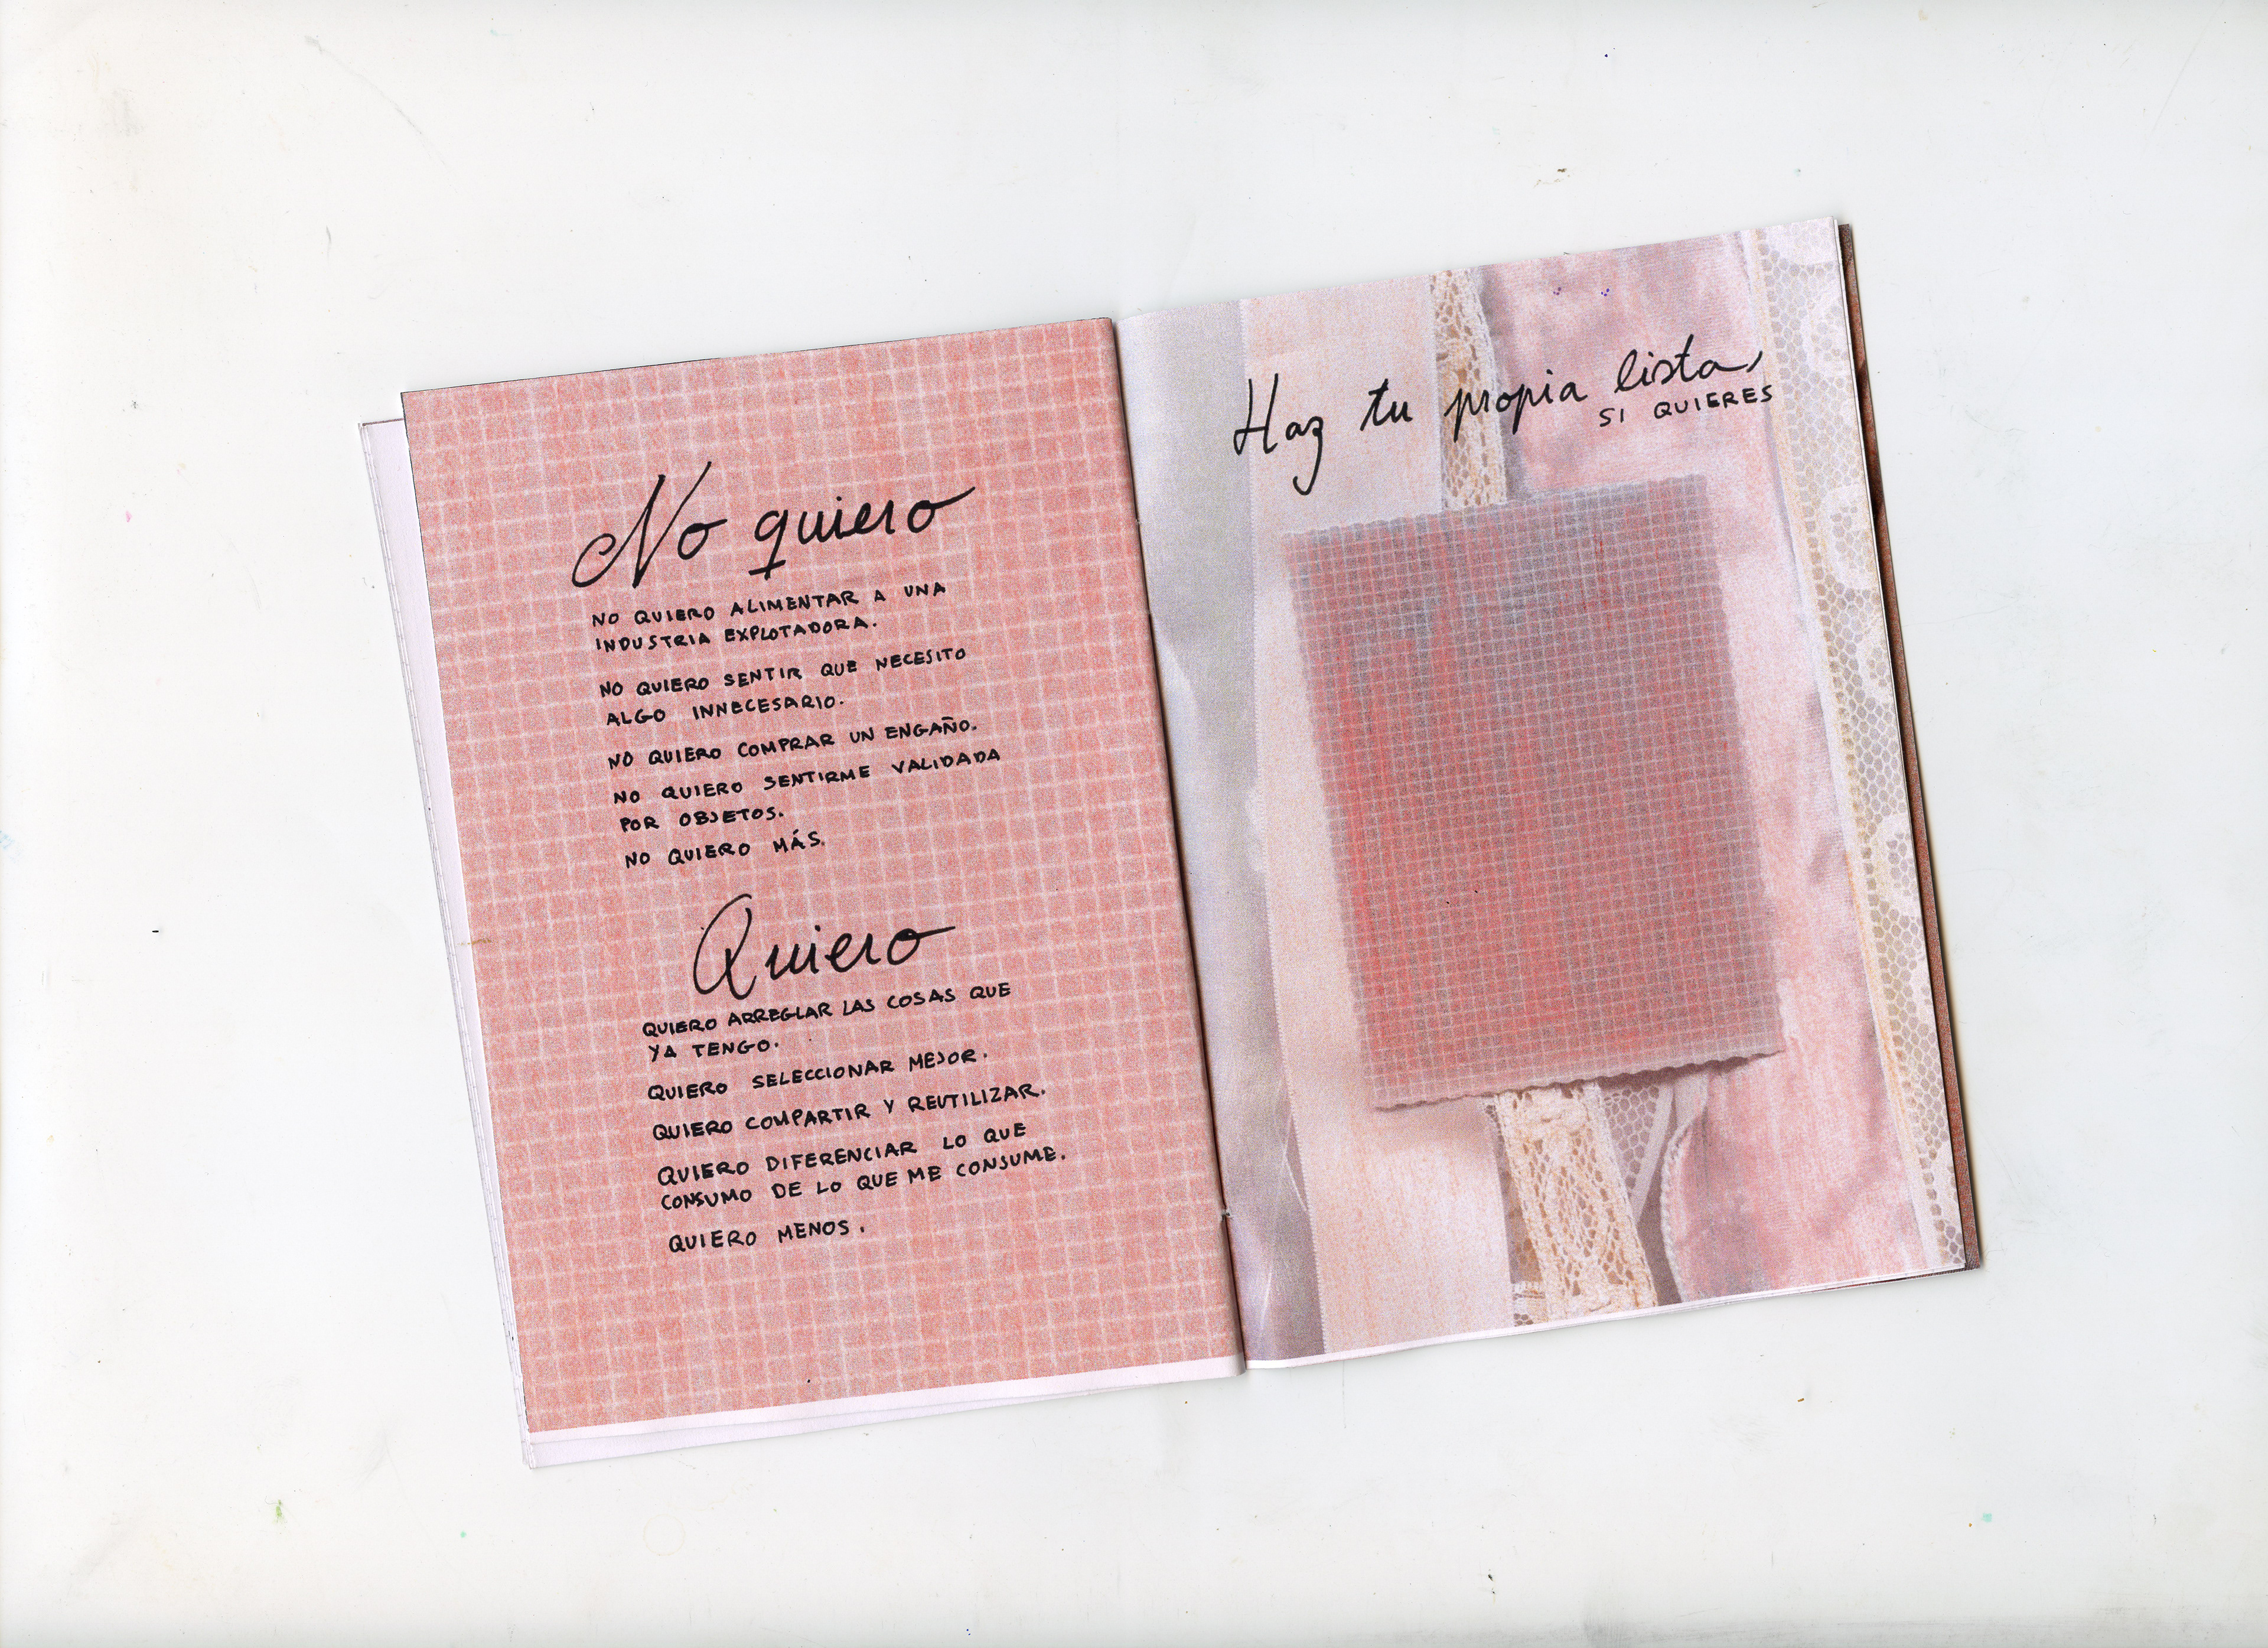 No quiero
NO QUIERO ALIMENTAR A UNA
INDUSTRIA EXPLOTADORA.
NO QUIERO SENTIR QUE NECESITO
ALGO INNECESARIO.
NO QUIERO COMPRAR UN ENGAÑO.
NO QUIERO SENTIRME VALIDADA
POR OBJETOS.
NO QUIERO MÁS.
Quiero
QUIERO ARREGLAR LAS COSAS QUE
YA TENGO.
QUIERO SELECCIONAR MEJOR.
QUIERO COMPARTIR Y REUTILIZAR.
QUIERO DIFERENCIAR LO QUE
CONSUMO DE LO QUE ME CONSUME.
QUIERO MENOS.
Haz tu propia lista,
SI QUIERES